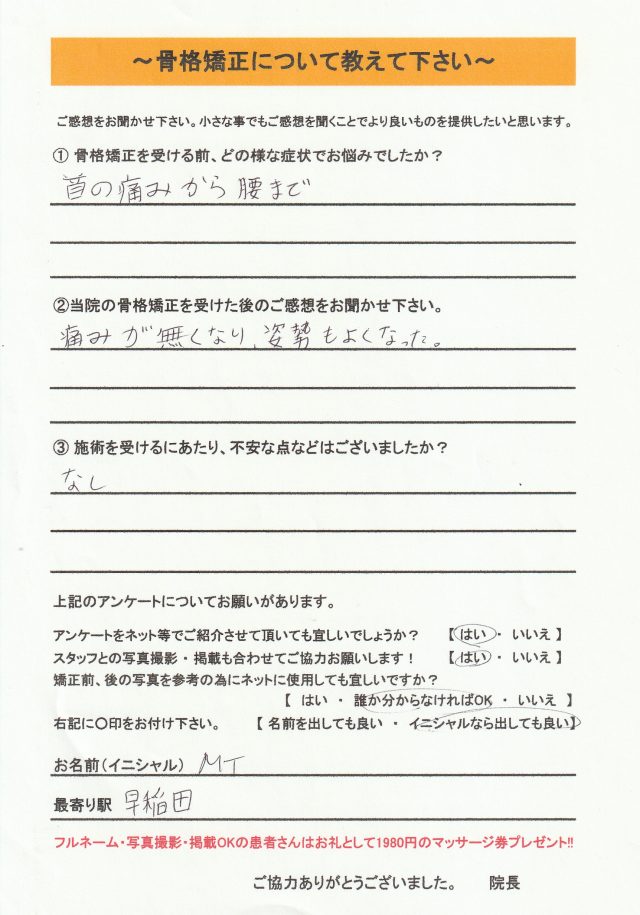 ～骨格矯正について教えて下さい～
ご感想をお聞かせ下さい。小さな事でもご感想を聞くことでより良いものを提供したいと思います。
① 骨格矯正を受ける前、どの様な症状でお悩みでしたか？
首の痛みから腰まで
②当院の骨格矯正を受けた後のご感想をお聞かせ下さい。
痛みが無くなり、姿勢もよくなった。
③ 施術を受けるにあたり、不安な点などはございましたか？
なし
上記のアンケートについてお願いがあります。
アンケートをネット等でご紹介させて頂いても宜しいでしょうか？　【 はい ・ いいえ 】
スタッフとの写真撮影・掲載も合わせてご協力お願いします！　【 はい ・ いいえ 】
矯正前、後の写真を参考の為にネットに使用しても宜しいですか？
【 はい ・ 誰か分からなければOK ・ いいえ 】
右記に〇印をお付け下さい。　【 名前を出しても良い ・ イニシャルなら出しても良い】
お名前（イニシャル） MT
最寄り駅 早稲田
フルネーム・写真撮影・掲載OKの患者さんはお礼として1980円のマッサージ券プレゼント!!
ご協力ありがとうございました。　院長